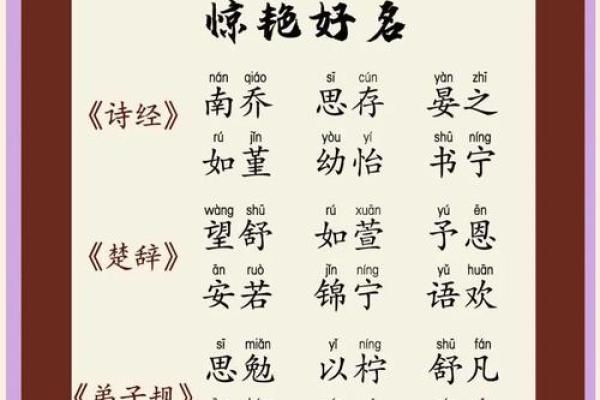 惊艳好名
nán qiáo sī cún yàn zhī
《诗经》 南乔 思存 晏之
rú jǐn yòu yí shū níng
如堇 幼怡 书宁
wàng shū rú xuān yú ēn
《楚辞》 望舒 如萱 予恩
ān ruò jǐn níng yǔ huān
安若 锦宁 语欢
sī miǎn yǐ níng shū fán
思勉 以柠 舒凡
《弟子规》